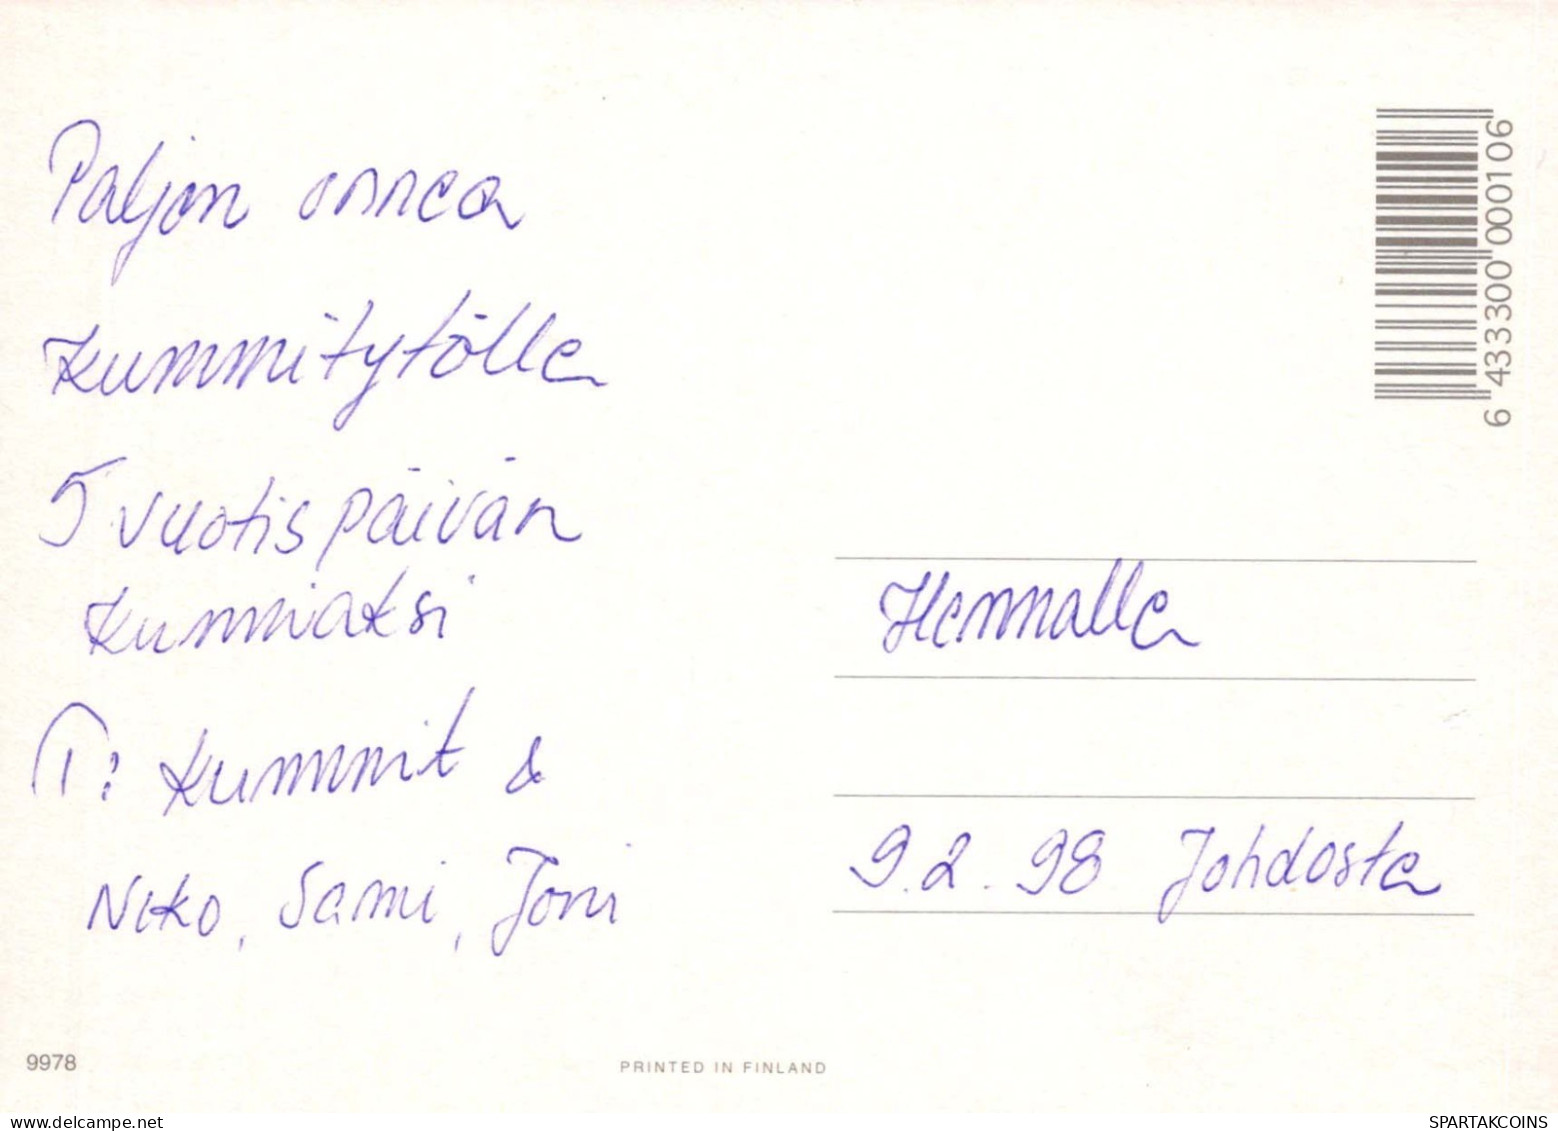 Paljon onnea
kummitytölle
5 vuotispäivän
kunniaksi
T: kummit &
Niko, Sami, Joni
Hennalle
9.2.98 Johdosta
6 433300 000106
9978
PRINTED IN FINLAND
www.delcampe.net
SPARTAKCOINS